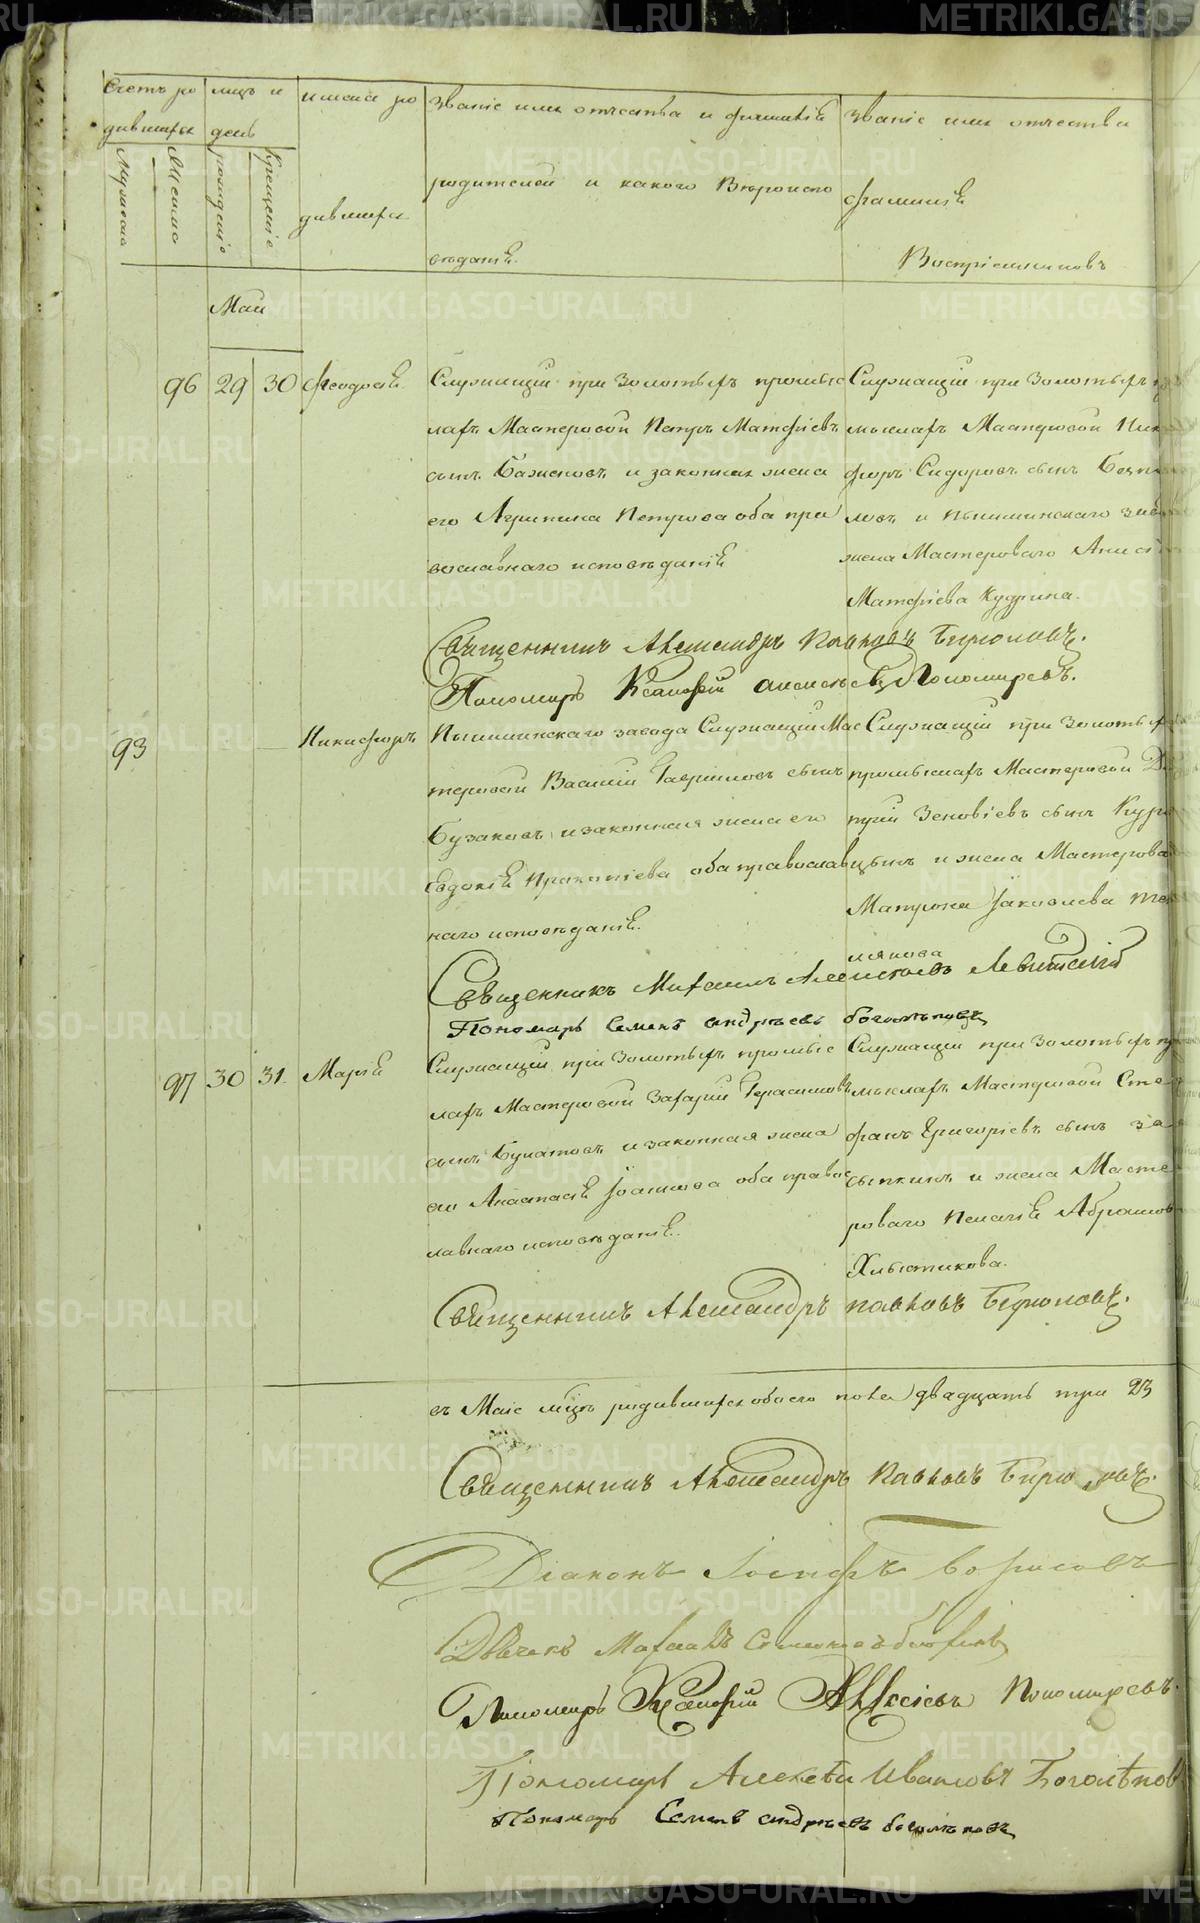 METRIKI.GASO-URAL.RU
Счетъ ро
дившихся
Мужеска
Женска
мцъ и
день
рожденіе
Крещеніе
имена ро
дившихся
Званіе имя отчества и фамиліѣ
родителей и какого Вѣроиспо
вѣданіѣ.
Званіе имя отчества
фамиліѣ
Воспріемниковъ
Маіи
96 29 30 Феодосіѣ
Служащій при Золотыхъ промыс
лахъ Мастеровой Петръ Матфіевъ
сынъ Баженовъ и законная жена
его Агрипина Петрова оба пра
вославнаго исповѣданіѣ
Служащій при Золотыхъ
мыслахъ Мастеровой
форъ Сидоровъ сынъ
левъ и Пышминскаго
жена Мастероваго
Матфіева Кудрина.
Священникъ Александръ Павловъ Бирюковъ.
Пономарь Ксанофій Алексѣевъ Пономаревъ.
93 Никифоръ
Пышминскаго завода Служащій Мас
теровой Василій Гавриловъ сынъ
Бузаковъ и законная жена его
Евдокіѣ Прокопіева оба православ
наго исповѣданіѣ.
Служащій при Золотых
промыслахъ Мастеровой
трій Зеновіевъ сынъ
цынъ и жена Мастерова
Матрона Іаковлева
лякова
Священникъ Михаилъ Алексѣевъ Левитскій
Пономарь Семенъ андрѣевъ боголѣповъ
97 30 31. Маріѣ
Служащій при Золотыхъ промыс
лахъ Мастеровой Захарій Герасимовъ
сынъ Булатовъ и законная жена
его Анастасіѣ Іоаннова оба правос
лавнаго исповѣданіѣ.
Служащій при Золотыхъ
мыслахъ Мастеровой Сте
фанъ Григоріевъ сынъ За
сыпкинъ и жена Масте
роваго Пелагіѣ Абрамов
Хлыстикова.
Священникъ Александръ Павловъ Бирюковъ.
въ Маіе мцѣ родившихся обоего пола двадцать три 23
Священникъ Александръ Павловъ Бирюковъ.
Діаконъ Іосифъ Борисовъ
Дьячекъ
Пономарь Ксанофій Алексіевъ Пономаревъ.
Пономарь Алексѣй Ивановъ Боголѣпов
Пономарь Семенъ андрѣевъ боголѣповъ